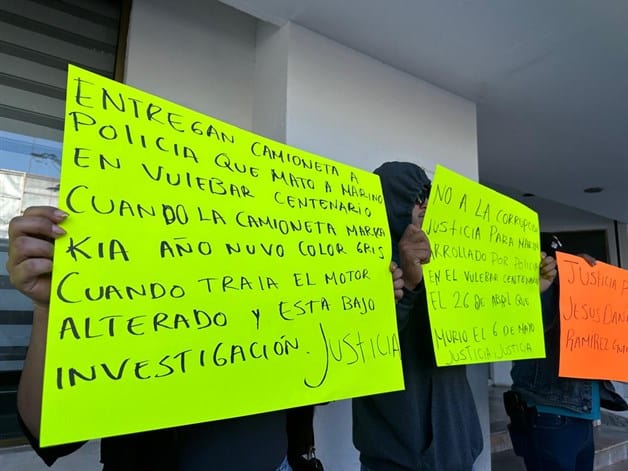 ENTREGAN CAMIONETA A
POLICIA QUE MATO A MARINO
EN VULEBAR CENTENARIO
CUANDO LA CAMIONETA MARKA
KIA AÑO NUVO COLOR GRIS
CUANDO TRAIA EL MOTOR
ALTERADO Y ESTA BAJO
INVESTIGACIÓN. JUSTICIA
NO A LA CORRUPCION
JUSTICIA PARA MARINO
ARROLLADO POR POLICIA
EN EL VULEBAR CENTENARIO
EL 26 DE ABRIL QUE
MURIO EL 6 DE MAYO
JUSTICIA JUSTICIA
JUSTICIA P
JESUS DAN
RAMIREZ